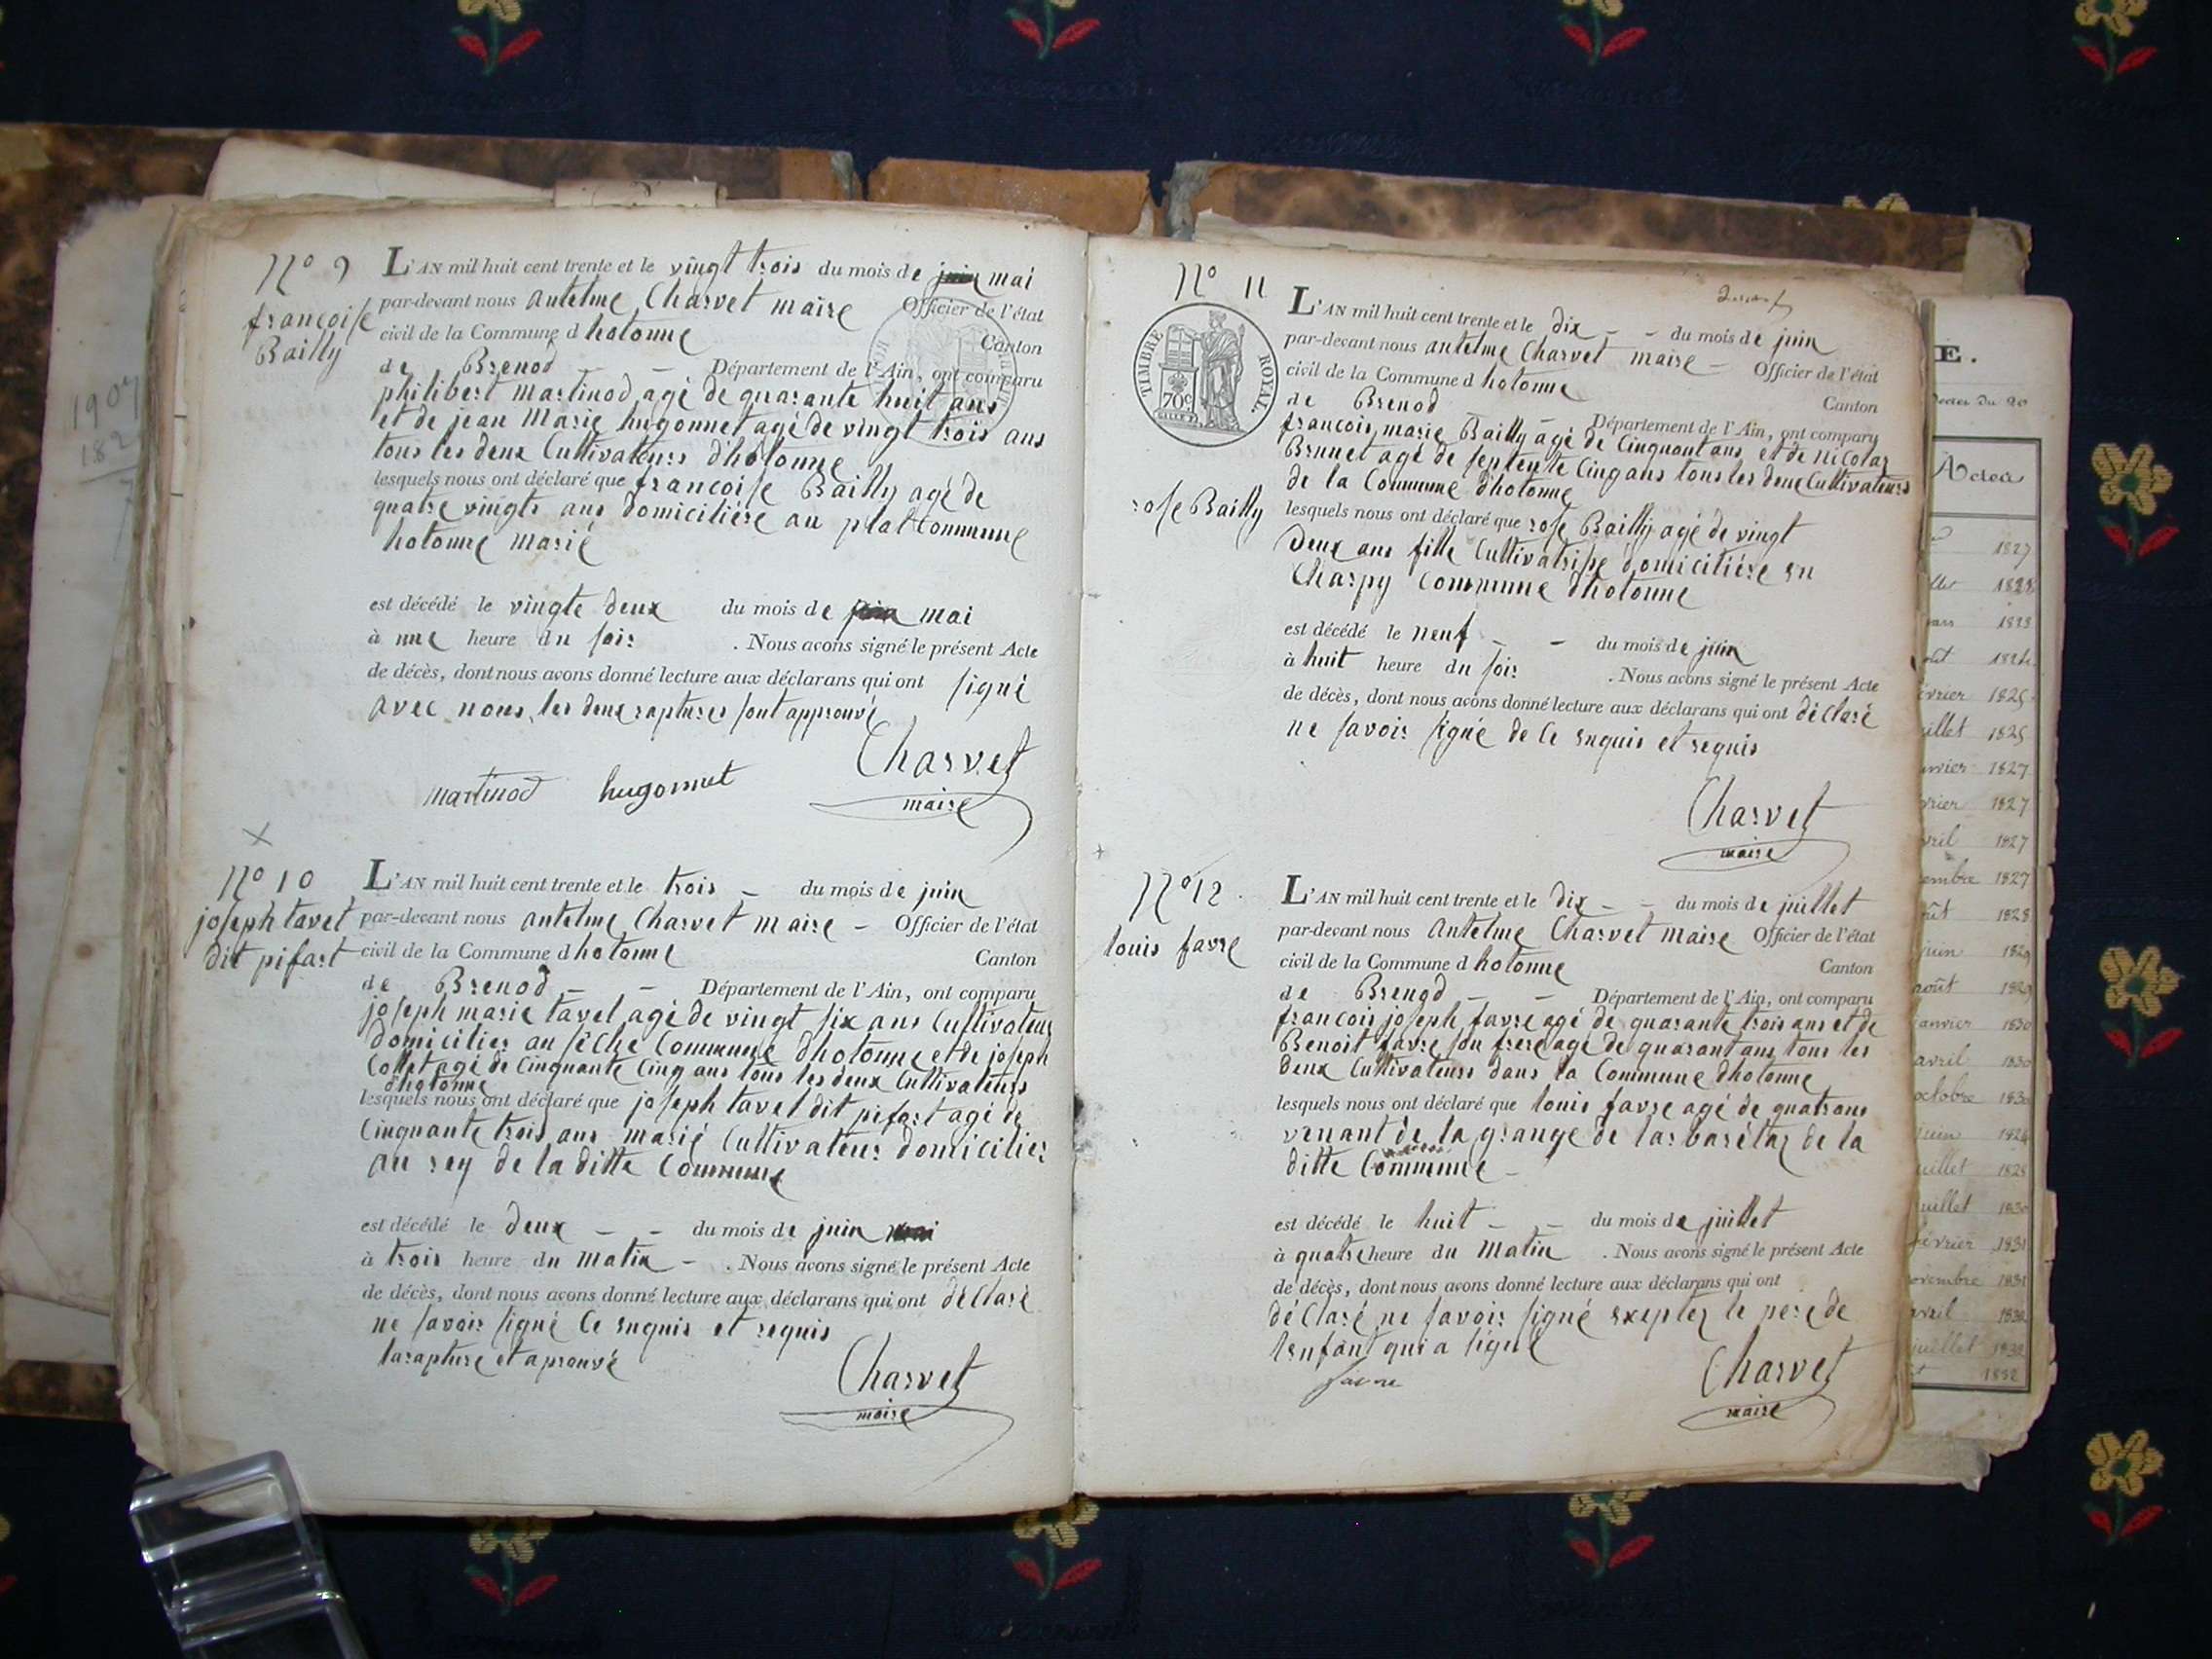 N° 9
françoise
Bailly
L'AN mil huit cent trente et le vingt trois du mois de juin mai
par-devant nous antelme Charvet maire Officier de l'état
civil de la Commune d hotonne Canton
de Brenod — Département de l'Ain, ont comparu
philibert Martinod agé de quarante huit ans
et de jean Marie hugonnet agé de vingt trois ans
tous les deux Cultivateurs d'hotonne
lesquels nous ont déclaré que francoise Bailly agé de
quatre vingts ans domiciliére au plat Commune
hotonne marié
est décédé le vingte deux du mois de juin mai
à une heure du soir . Nous avons signé le présent Acte
de décès, dont nous avons donné lecture aux déclarans qui ont signé
avec nous, les deux raptures sont approuvé
Charvet
maire
martinod hugonnet
N° 10
joseph tavet
dit pifart
L'AN mil huit cent trente et le trois — du mois de juin
par-devant nous antelme Charvet maire — Officier de l'état
civil de la Commune d hotonne Canton
de Brenod — — Département de l'Ain, ont comparu
joseph marie tavet agé de vingt six ans Cultivateur
domicilier au séche Commune d'hotonne et de joseph
Collet agé de Cinquante Cinq ans tous les deux Cultivateurs
d'hotonne
lesquels nous ont déclaré que joseph tavet dit pifart agé de
Cinquante trois ans marié Cultivateur domicilier
au rey de la ditte Commune
est décédé le deux — — du mois de juin mai
à trois heure du matin — . Nous avons signé le présent Acte
de décès, dont nous avons donné lecture aux déclarans qui ont déclaré
ne savoir signé Ce enquis et requis
la rapture et aprouvé
Charvet
maire
N° 11
TIMBRE ROYAL.
70c
rose Bailly
L'AN mil huit cent trente et le dix — — du mois de juin
par-devant nous antelme Charvet maire — Officier de l'état
civil de la Commune d hotonne Canton
de Brenod Département de l'Ain, ont comparu
francois marie Bailly agé de Cinquant ans, et de nicolas
Brunet agé de septente Cinq ans tous les deux Cultivateurs
de la Commune d'hotonne
lesquels nous ont déclaré que rose Bailly agé de vingt
Deux ans fille Cultivatrisse domiciliére en
Charpy Commune d'hotonne
est décédé le neuf — — du mois de juin
à huit heure du soir . Nous avons signé le présent Acte
de décès, dont nous avons donné lecture aux déclarans qui ont déclaré
ne savoir signé de Ce enquis et requis
Charvet
maire
N° 12
louis favre
L'AN mil huit cent trente et le dix — — du mois de juillet
par-devant nous Antelme Charvet maire Officier de l'état
civil de la Commune d hotonne Canton
de Brenod — — Département de l'Ain, ont comparu
francois joseph favre agé de quarante trois ans et de
Benoit favre son frere agé de quarant ans tous les
deux Cultivateurs dans la Commune d'hotonne
lesquels nous ont déclaré que louis favre agé de quatrans
venant de la grange de lar barétaz de la
ditte Commune —
est décédé le huit — — du mois de juillet
à quatre heure du Matin . Nous avons signé le présent Acte
de décès, dont nous avons donné lecture aux déclarans qui ont
déclaré ne savoir signé exepter le pere de
lenfant qui a signé
favre
Charvet
maire
1907
182
E.
Actes
1827
1828
1823
1824
février 1825
juillet 1825
janvier 1827
février 1827
avril 1827
embre 1827
août 1828
juin 1829
août 1829
janvier 1830
avril 1830
octobre 1830
juin 1824
juillet 1825
juillet 1830
février 1831
novembre 1831
avril 1832
juillet 1832
1832